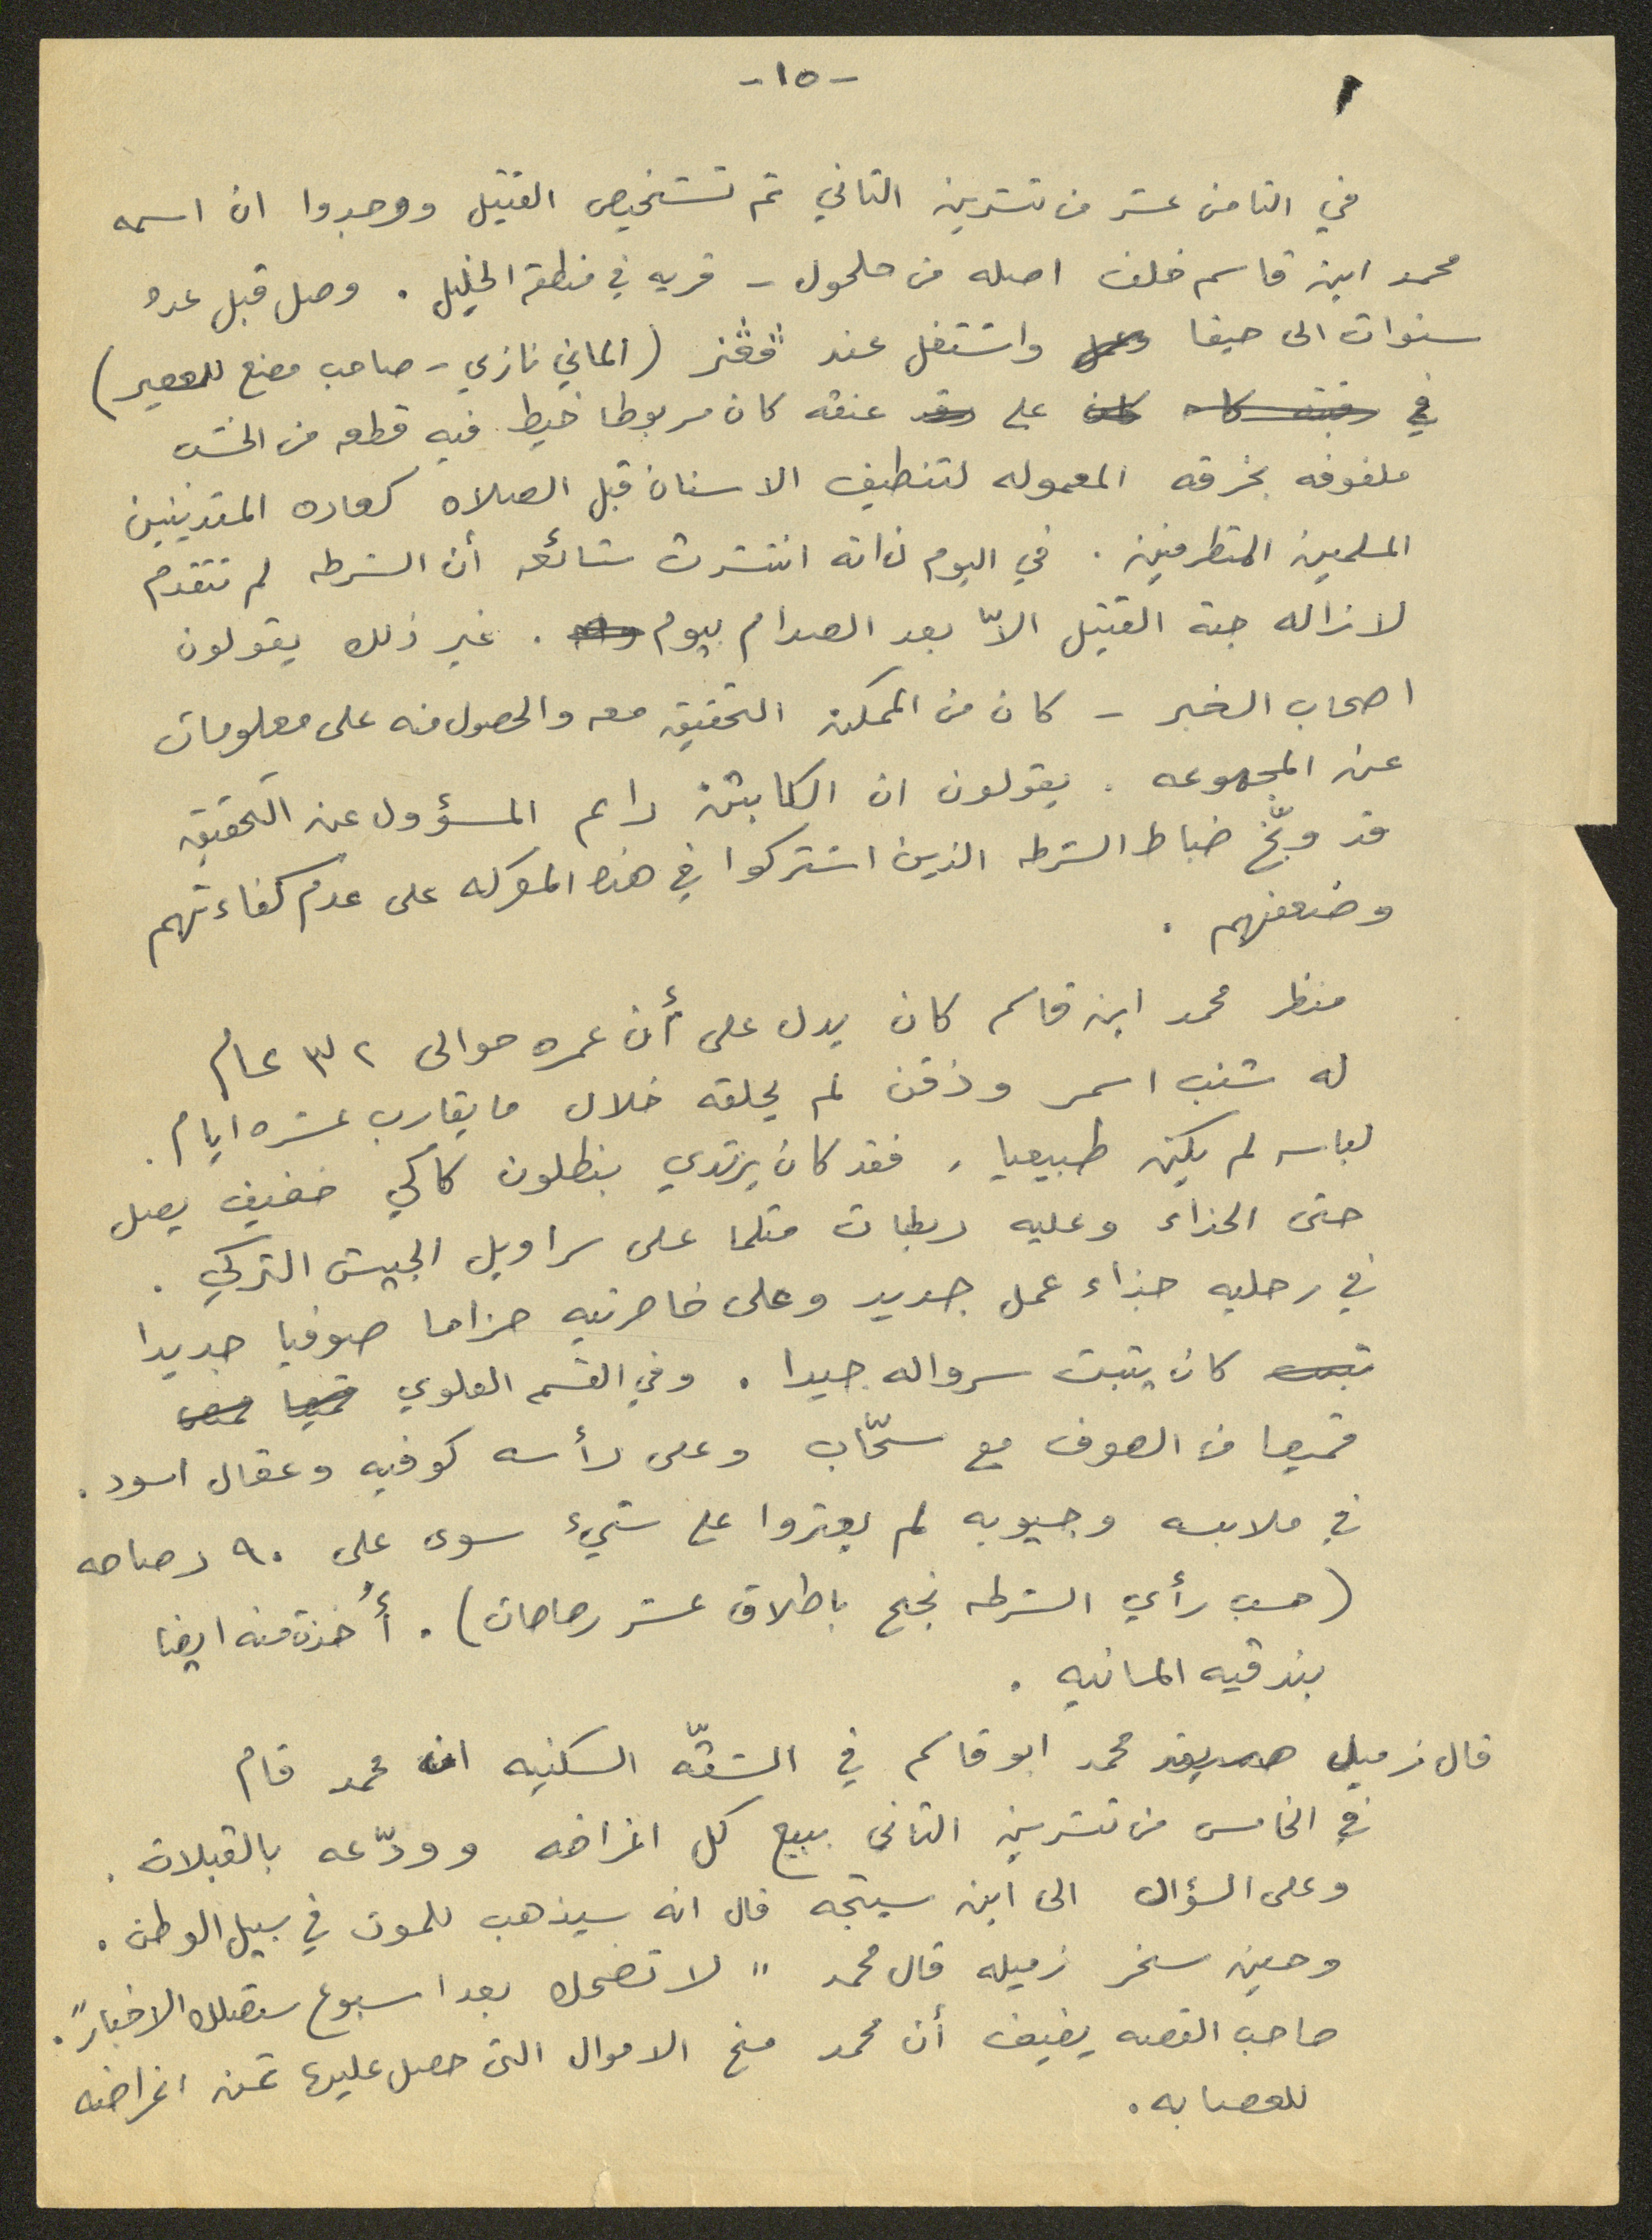 -١٥-
في الثامن عشر من تشرين الثاني تم تشخيص القتيل ووجدوا ان اسمه
محمد ابن قاسم خلف اصله من حلحول - قريه في منطقة الخليل . وصل قبل عدة
سنوات الى حيفا واشتغل عند ڤڤنر (الماني نازي - صاحب مصنع للعصير)
في على عنقه كان مربوطا خيط فيه قطعه من الخشب
ملفوفه بخرقه المعموله لتنظيف الاسنان قبل الصلاه كعاده المتدينين
المسلمين المتطرفين . في اليوم ذاته انتشرت شائعه أن الشرطه لم تتقدم
لازاله جثة القتيل الاّ بعد الصدام بيوم . غير ذلك يقولون
اصحاب الخبر - كان من الممكن التحقيق معه والحصول منه على معلومات
عن المجموعه . يقولون ان الكابتن رايم المسؤول عن التحقيق
قد وبّخ ضباط الشرطه الذين اشتركوا في هذه المعركه على عدم كفاءتهم
وضعفهم .
منظر محمد ابن قاسم كان يدل على أن عمره حوالى ٣٢ عام
له شنب اسمر وذقن لم يحلقه خلال ما يقارب عشره ايام .
لباسه لم يكن طبيعيا ، فقد كان يرتدي بنطلون كاكي خفيف يصل
حتى الحذاء وعليه ربطات مثلما على سراويل الجيش التركي .
في رجليه حذاء عمل جديد وعلى خاصرتيه حزاما صوفيا جديدا
كان يثبت سرواله جيدا . وفي القسم العلوي
قميصا من الصوف مع سحّاب وعلى رأسه كوفيه وعقال اسود .
في ملابسه وجيوبه لم يعثروا على شيء سوى على ٩٠ رصاصه
(حسب رأي الشرطه نجح باطلاق عشر رصاصات) . أُخذت منه ايضا
بندقيه المانيه .
قال زميل محمد ابو قاسم في الشقّه السكنيه ان محمد قام
في الخامس من تشرين الثاني ببيع كل اغراضه وودّعه بالقبلات .
وعلى السؤال الى اين سيتجه قال انه سيذهب للموت في سبيل الوطن .
وحين سخر زميله قال محمد " لا تضحك بعد اسبوع ستصلك الاخبار" .
صاحب القصه يضيف أن محمد منح الاموال التي حصل عليها ثمن اغراضه
للعصابه .